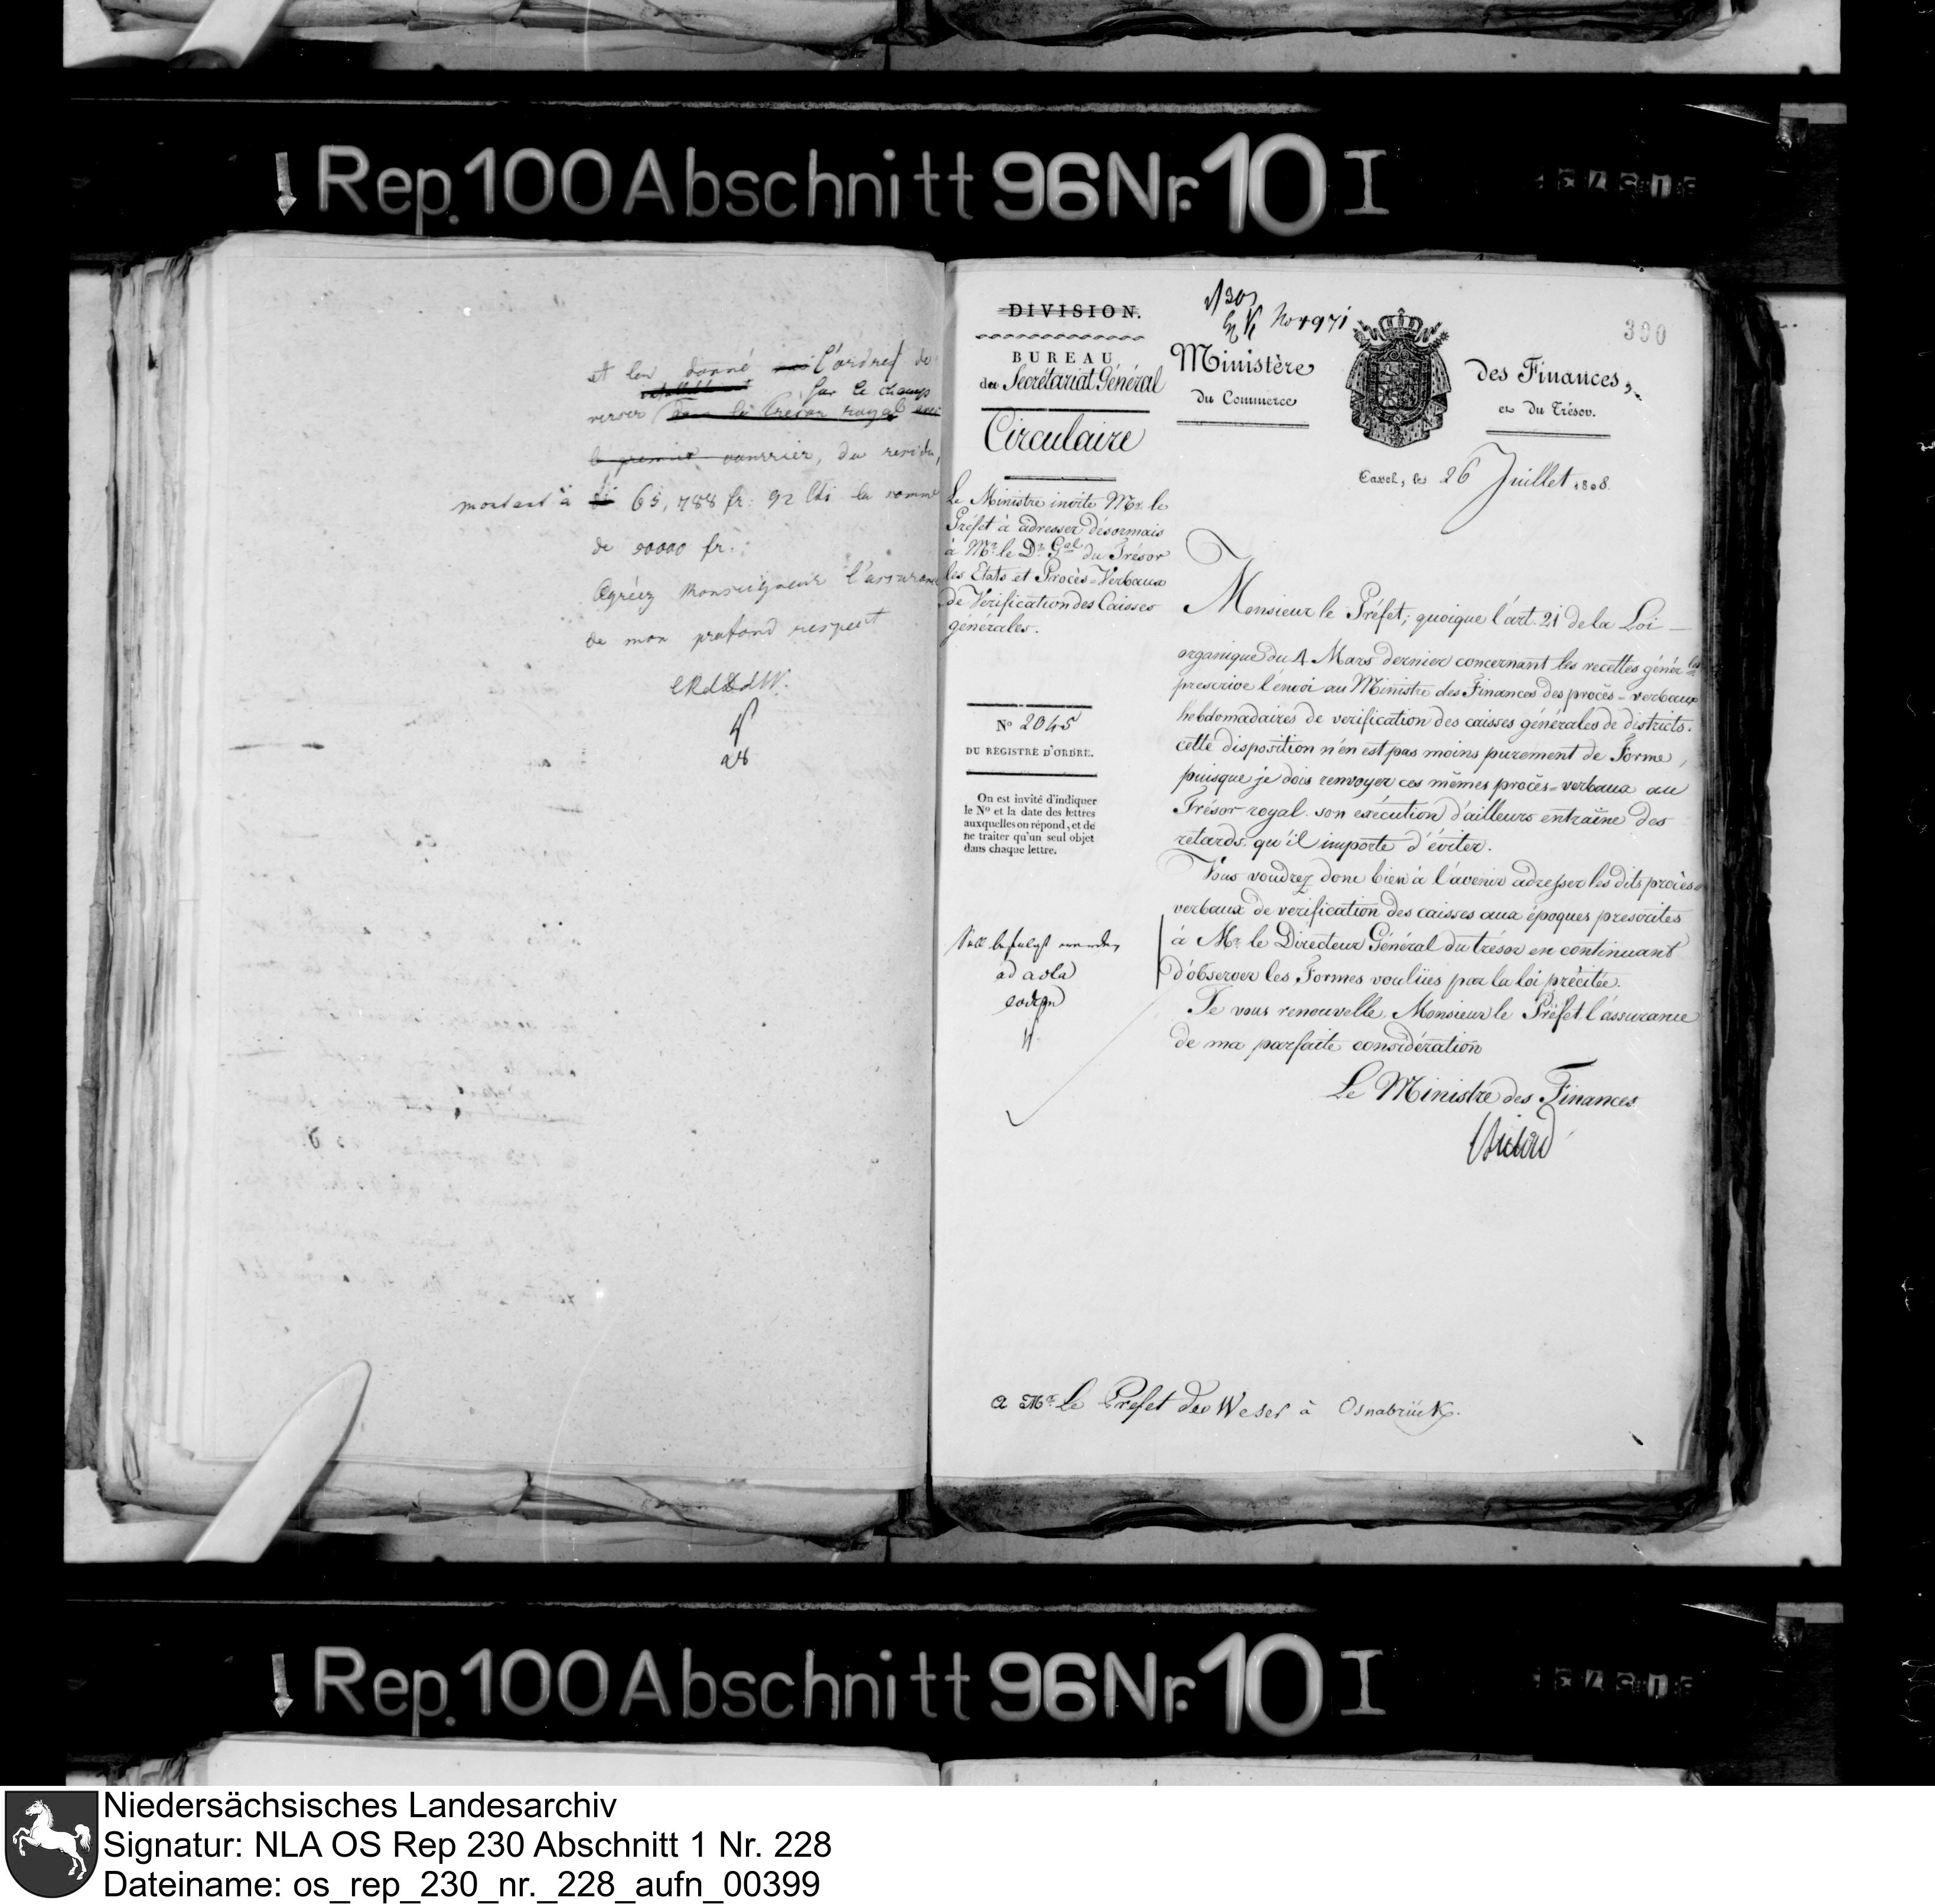 Rep. 100 Abschnitt 96 Nr. 10 I
et leur donné l'ordre de
sur le champ
verser dans le Tresor royal avec
le premier courrier, du residu,
montant à 65,788 fr. 92 Cts la somme
de 50000 fr.
Agréez Monseigneur l'assurance
de mon profond respect
28
390
No 4971
DIVISION.
BUREAU
du Secrétariat Général
Circulaire
Le Ministre invite Mr. le
Préfet à adresser désormais
à Mr. le Dr. Gal du Trésor
les Etats et Procès=Verbaux
de Vérification des Caisses
générales.
No 2045
DU REGISTRE D'ORDRE.
On est invité d'indiquer
le No et la date des lettres
auxquelles on répond, et de
ne traiter qu'un seul objet
dans chaque lettre.
Soll befolgt werden
ad acta
Ministère des Finances,
du Commerce et du Trésor.
Cassel, le 26 Juillet 1808.
Monsieur le Préfet, quoique l'art. 21 de la Loi
organique du 4 Mars dernier concernant les recettes génér.les
prescrive l'envoi au Ministre des Finances des procès-verbaux
hebdomadaires de verification des caisses générales de districts.
cette disposition n'en est pas moins purement de Forme,
puisque je dois renvoyer ces mêmes procès=verbaux au
Trésor royal. son exécution d'ailleurs entraîne des
retards qu'il importe d'éviter.
Vous voudrez donc bien à l'avenir adresser les dits procès
verbaux de verification des caisses aux époques prescrites
à Mr. le Directeur Général du trésor en continuant
d'observer les Formes voulües par la loi précitée.
Je vous renouvelle, Monsieur le Préfet l'assurance
de ma parfaite considération
Le Ministre des Finances
A Mr. Le Prefet du Weser à Osnabrück.
Rep. 100 Abschnitt 96 Nr. 10 I
Niedersächsisches Landesarchiv
Signatur: NLA OS Rep 230 Abschnitt 1 Nr. 228
Dateiname: os_rep_230_nr._228_aufn_00399